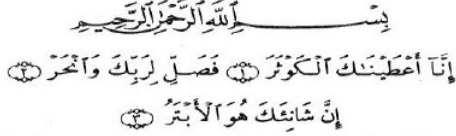 بِسْمِ ٱللَّهِ ٱلرَّحْمَٰنِ ٱلرَّحِيمِ
إِنَّآ أَعْطَيْنَٰكَ ٱلْكَوْثَرَ ۝١ فَصَلِّ لِرَبِّكَ وَٱنْحَرْ ۝٢
إِنَّ شَانِئَكَ هُوَ ٱلْأَبْتَرُ ۝٣